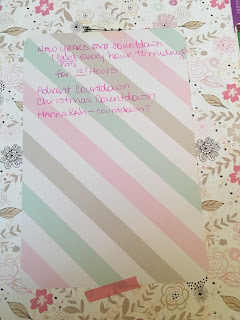 New Years Eve Countdown
1 every hour to midnight
for 12 Hours.
Advent Countdown
Christmas Countdown
Hannakah - countdown?